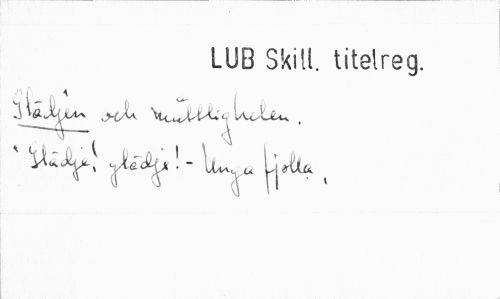 LUB Skill. titelreg.
Glädjen och måttligheten.
"Glädje! glädje! - Unga fjolla,